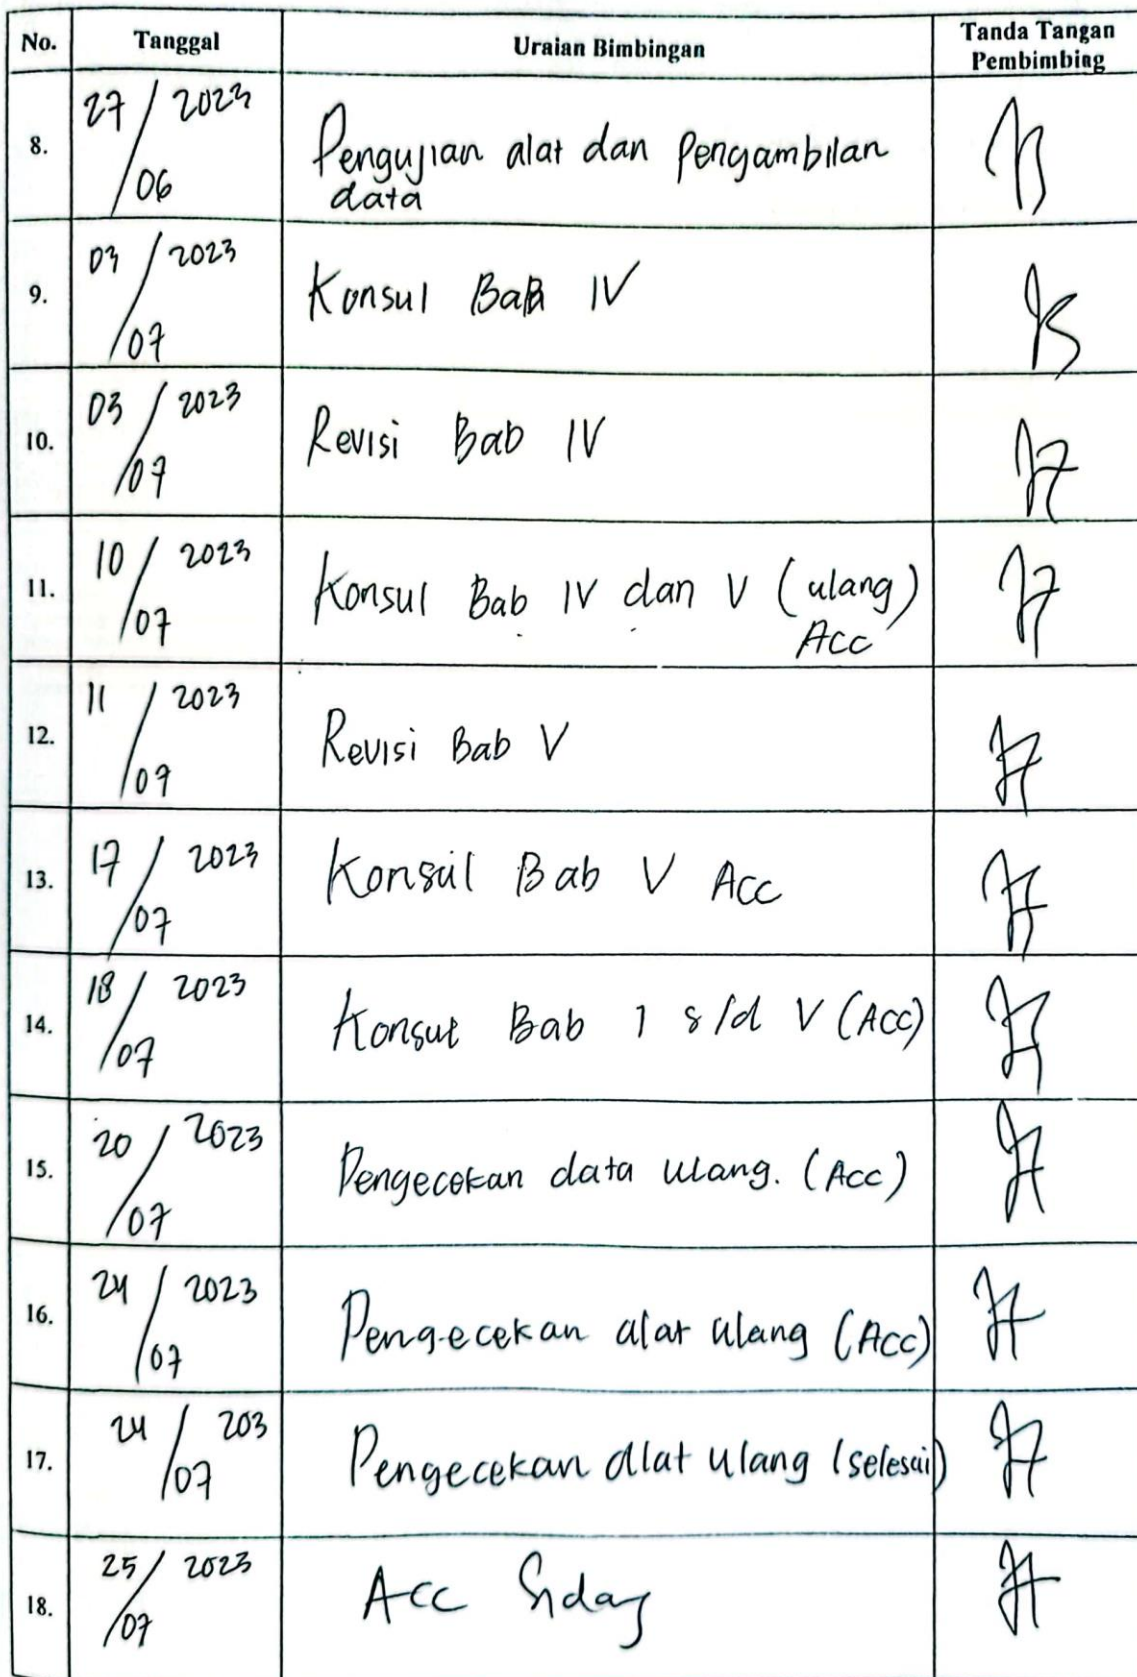 No. Tanggal Uraian Bimbingan Tanda Tangan Pembimbing
8. 27/06 2023 Pengujian alat dan Pengambilan
data
9. 03/07 2023 Konsul Bab IV
10. 03/07 2023 Revisi Bab IV
11. 10/07 2023 Konsul Bab IV dan V (ulang)
Acc
12. 11/07 2023 Revisi Bab V
13. 17/07 2023 Konsul Bab V Acc
14. 18/07 2023 Konsul Bab 1 s/d V (Acc)
15. 20/07 2023 Pengecekan data ulang. (Acc)
16. 24/07 2023 Pengecekan alat ulang (Acc)
17. 24/07 203 Pengecekan alat ulang (selesai)
18. 25/07 2023 Acc Sidang